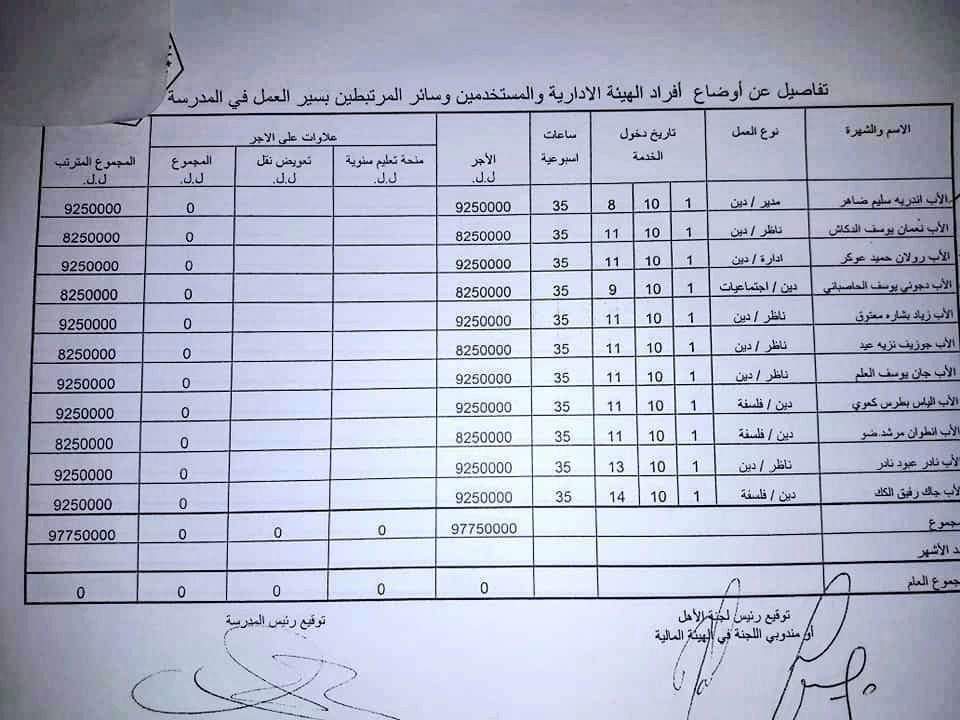 تفاصيل عن أوضاع أفراد الهيئة الادارية والمستخدمين وسائر المرتبطين بسير العمل في المدرسة
الاسم والشهرة نوع العمل تاريخ دخول الخدمة ساعات اسبوعية الأجر ل.ل. علاوات على الاجر المجموع المترتب ل.ل.
منحة تعليم سنوية ل.ل. تعويض نقل ل.ل. المجموع ل.ل.
الأب اندريه سليم ضاهر مدير / دين 1 10 8 35 9250000 0 9250000
الأب نعمان يوسف الدكاش ناظر / دين 1 10 11 35 8250000 0 8250000
الأب رولان حميد عوكر ادارة / دين 1 10 11 35 9250000 0 9250000
الأب دجوني يوسف الحاصباني دين / اجتماعيات 1 10 9 35 8250000 0 8250000
الأب زياد بشاره معتوق ناظر / دين 1 10 11 35 9250000 0 9250000
الأب جوزيف نزيه عيد ناظر / دين 1 10 11 35 8250000 0 8250000
الأب جان يوسف العلم ناظر / دين 1 10 11 35 9250000 0 9250000
الأب الياس بطرس كعوي دين / فلسفة 1 10 11 35 9250000 0 9250000
الأب انطوان مرشد ضو دين / فلسفة 1 10 11 35 8250000 0 8250000
الأب نادر عبود نادر ناظر / دين 1 10 13 35 9250000 0 9250000
الأب جاك رفيق الكك دين / فلسفة 1 10 14 35 9250000 0 9250000
جموع 97750000 0 0 0 97750000
د الأشهر
جموع العام 0 0 0 0 0
توقيع رئيس لجنة الأهل
أو مندوبي اللجنة في الهيئة المالية
توقيع رئيس المدرسة